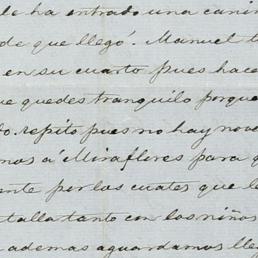 le ha entrado una cariñ
de que llegó. Manuel t
en su cuarto pues hace
ue quedes tranquilo porque
o. repito pues no hay nove
mos á Miraflores para q
ente por los cuates que l
talla tanto con los niños
ademas aguardamos lle